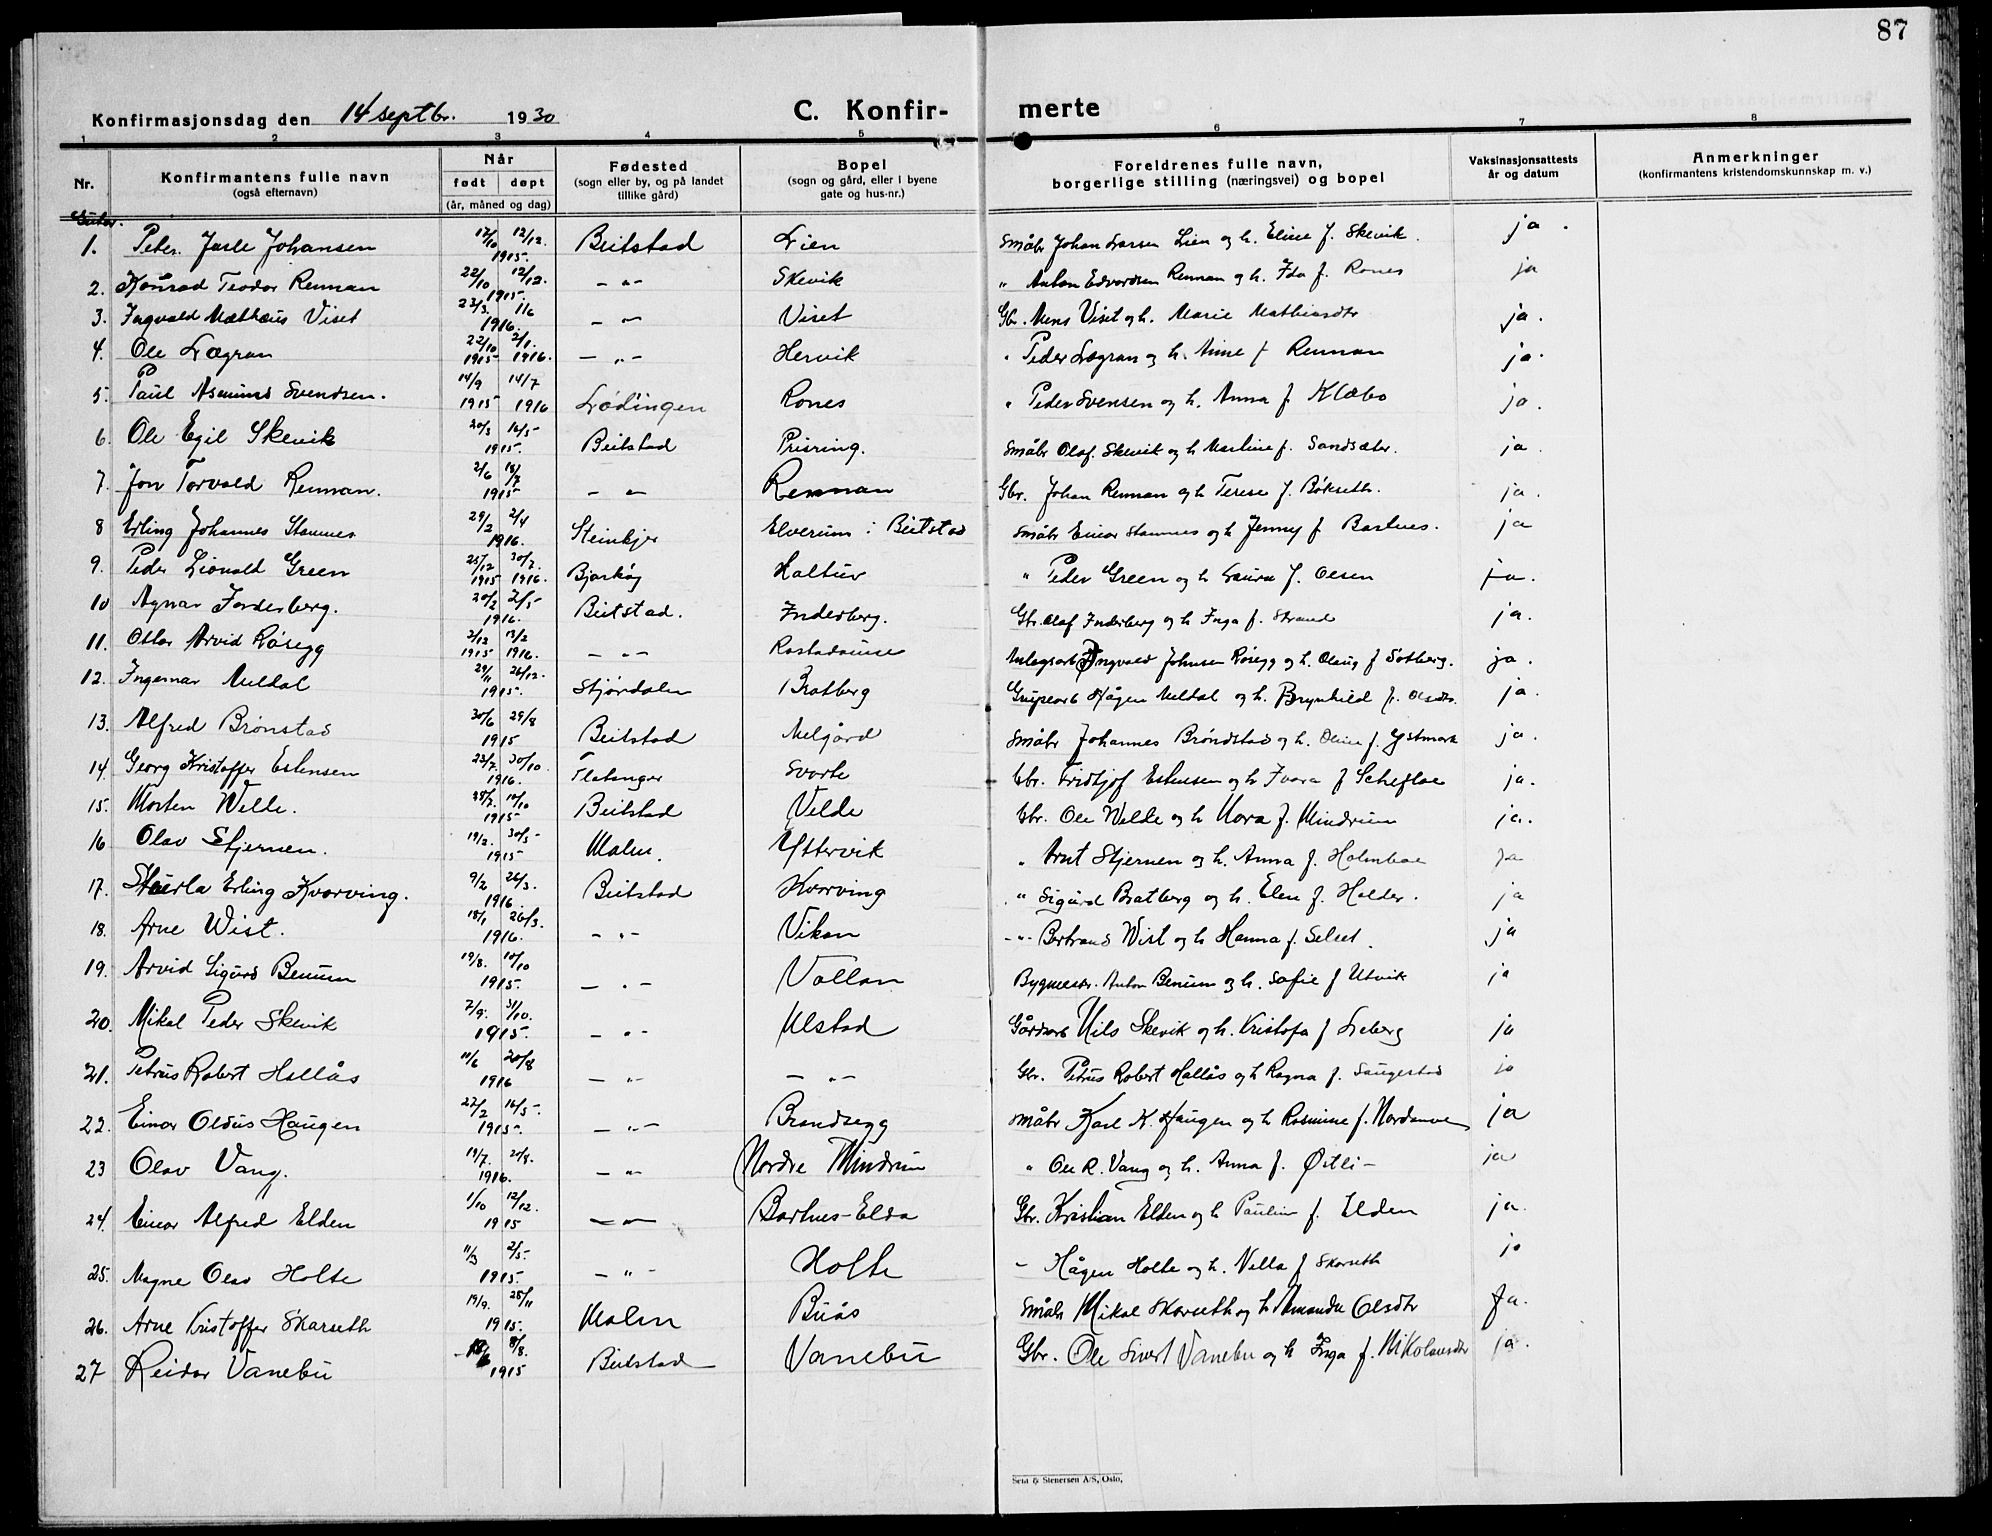 87
Konfirmasjonsdag den 14 septbr. 1930 C. Konfir- merte
1 2 3 4 5 6 7 8
Nr. Konfirmantens fulle navn (også efternavn) Når født døpt (år, måned og dag) Fødested (sogn eller by, og på landet tillike gård) Bopel (sogn og gård, eller i byene gate og hus-nr.) Foreldrenes fulle navn, borgerlige stilling (næringsvei) og bopel Vaksinasjonsattests år og datum Anmerkninger (konfirmantens kristendomskunnskap m. v.)
Gutter.
1. Peter Jarle Johansen 17/10 12/12. 1915. Beitstad Lien Småbr Johan Larsen Lien og h. Eline f. Skevik. ja.
2. Konrad Teodor Rennan 22/10 12/12. 1915. — „ — Skevik „ Anton Edvardsen Rennan og h. Ida f. Rones ja
3. Ingvald Mathæus Viset 23/3. 1/6 1916. — „ — Viset Gbr. Mens Viset og h. Marie Mathiasdtr ja.
4. Ole Lægran 22/10 1915 2/1. 1916. — „ — Hervik „ Peder Lægran og h. Anne f. Rennan ja.
5. Paul Asmund Svendsen. 14/9 1915 14/7 1916 Lødingen Rones „ Peder Svensen og h. Anna f. Klæbo ja.
6. Ole Egil Skevik 20/3 16/5 1915. Beitstad Prisring. Småbr Olaf Skevik og h Martine f. Sandsæter. ja.
7. Jon Torvald Rennan. 2/6 18/7 1915 — „ — Rennan Gbr. Johan Rennan og h Terese f. Bøkseth. ja.
8 Erling Johannes Stamnes 29/2 2/4 1916. Steinkjer Elverum i Beitstad Småbr Einar Stamnes og h Jenny f Bartnes. ja
9. Peder Lionald Green 25/12 1915 30/7. 1916. Bjarkøy Haltuv „ Peder Green og h Laura f. Olsen ja.
10 Agnar Inderberg. 20/2 2/5 1916. Beitstad. Inderberg. Gbr. Olaf Inderberg og h. Inga f. Strand ja.
11. Ottar Arvid Røsegg 2/12 1915 13/2 1916. — „ — Rostadaunet Anlagsarb Ingvald Johnsen Røsegg og h. Olaug f Solberg. ja.
12. Ingemar Meldal 29/11 26/12. 1915. Stjørdalen Bratberg Grupearb Hågen Meldal og h. Brynhild f. Olsdtr. ja.
13. Alfred Brønstad 30/6 29/8 1915 Beitstad Melgård Småbr Johannes Brøndstad og h. Oline f. Ystmark ja.
14. Georg Kristoffer Estensen 23/7. 30/10. 1916. Flatanger Svarte Gbr. Fridtjof Estensen og h Ivara f Scheflo ja.
15. Morten Welde. 28/7. 10/10 1915 Beitstad Velde Gbr. Ole Welde og h Nora f. Mindrum ja.
16 Olav Stjernen. 19/2. 30/5 1915 Malm. Yttervik „ Arnt Stjernen og h. Anna f. Holmboe ja
17. Sturla Erling Kvarving. 9/2 26/3. 1916. Beitstad Kvarving „ Sigurd Bratberg og h. Elen f. Holder. ja
18. Arne Wist. 18/1 26/3. 1916. — „ — Vikan — „ — Bertrand Wist og h Hanna f. Selset. ja
19. Arvid Sigurd Benum 19/8. 10/10 1915. — „ — Vollan Bygmestr. Anton Benum og h. Sofie f Utvik ja
20. Mikal Peder Skevik 7/9. 31/10. 1915. — „ — Ulstad Gårdsarb Nils Skevik og h. Kristofa f Lieberg ja
21. Petrus Robert Hallås 11/6 20/8 1916 — „ — — „ — Gbr. Petrus Robert Hallås og h Ragna f. Saugestad ja
22. Einar Oldus Haugen 22/2 16/5. 1915. — „ — Brandsegg Småbr Karl K. Haugen og h Rasmine f. Nordanve ja
23 Olav Vang. 19/7. 20/8. 1916. — „ — Nordre Mindrum „ Ole R. Vang og h. Anna f. Østli — ja
24. Einar Alfred Elden 1/10 12/12. 1915 — „ — Bartnes-Elda Gbr. Kristian Elden og h Pauline f. Elden ja
25. Magne Olav Holte 11/3 2/5. 1915. — „ — Holte — Hågen Holte og h. Vella f Skarseth ja
26. Arne Kristoffer Skarseth 19/9. 28/11 1915. Malm Buås Småbr Mikal Skarseth og h Amanda Olsdtr ja.
27 Reidar Vanebu 8/8. 1915 Beitstad Vanebu Gbr. Ole Sivert Vanebu og h Inga f. Nikolausdtr ja.
Seia & Stenersen A/S, Oslo.